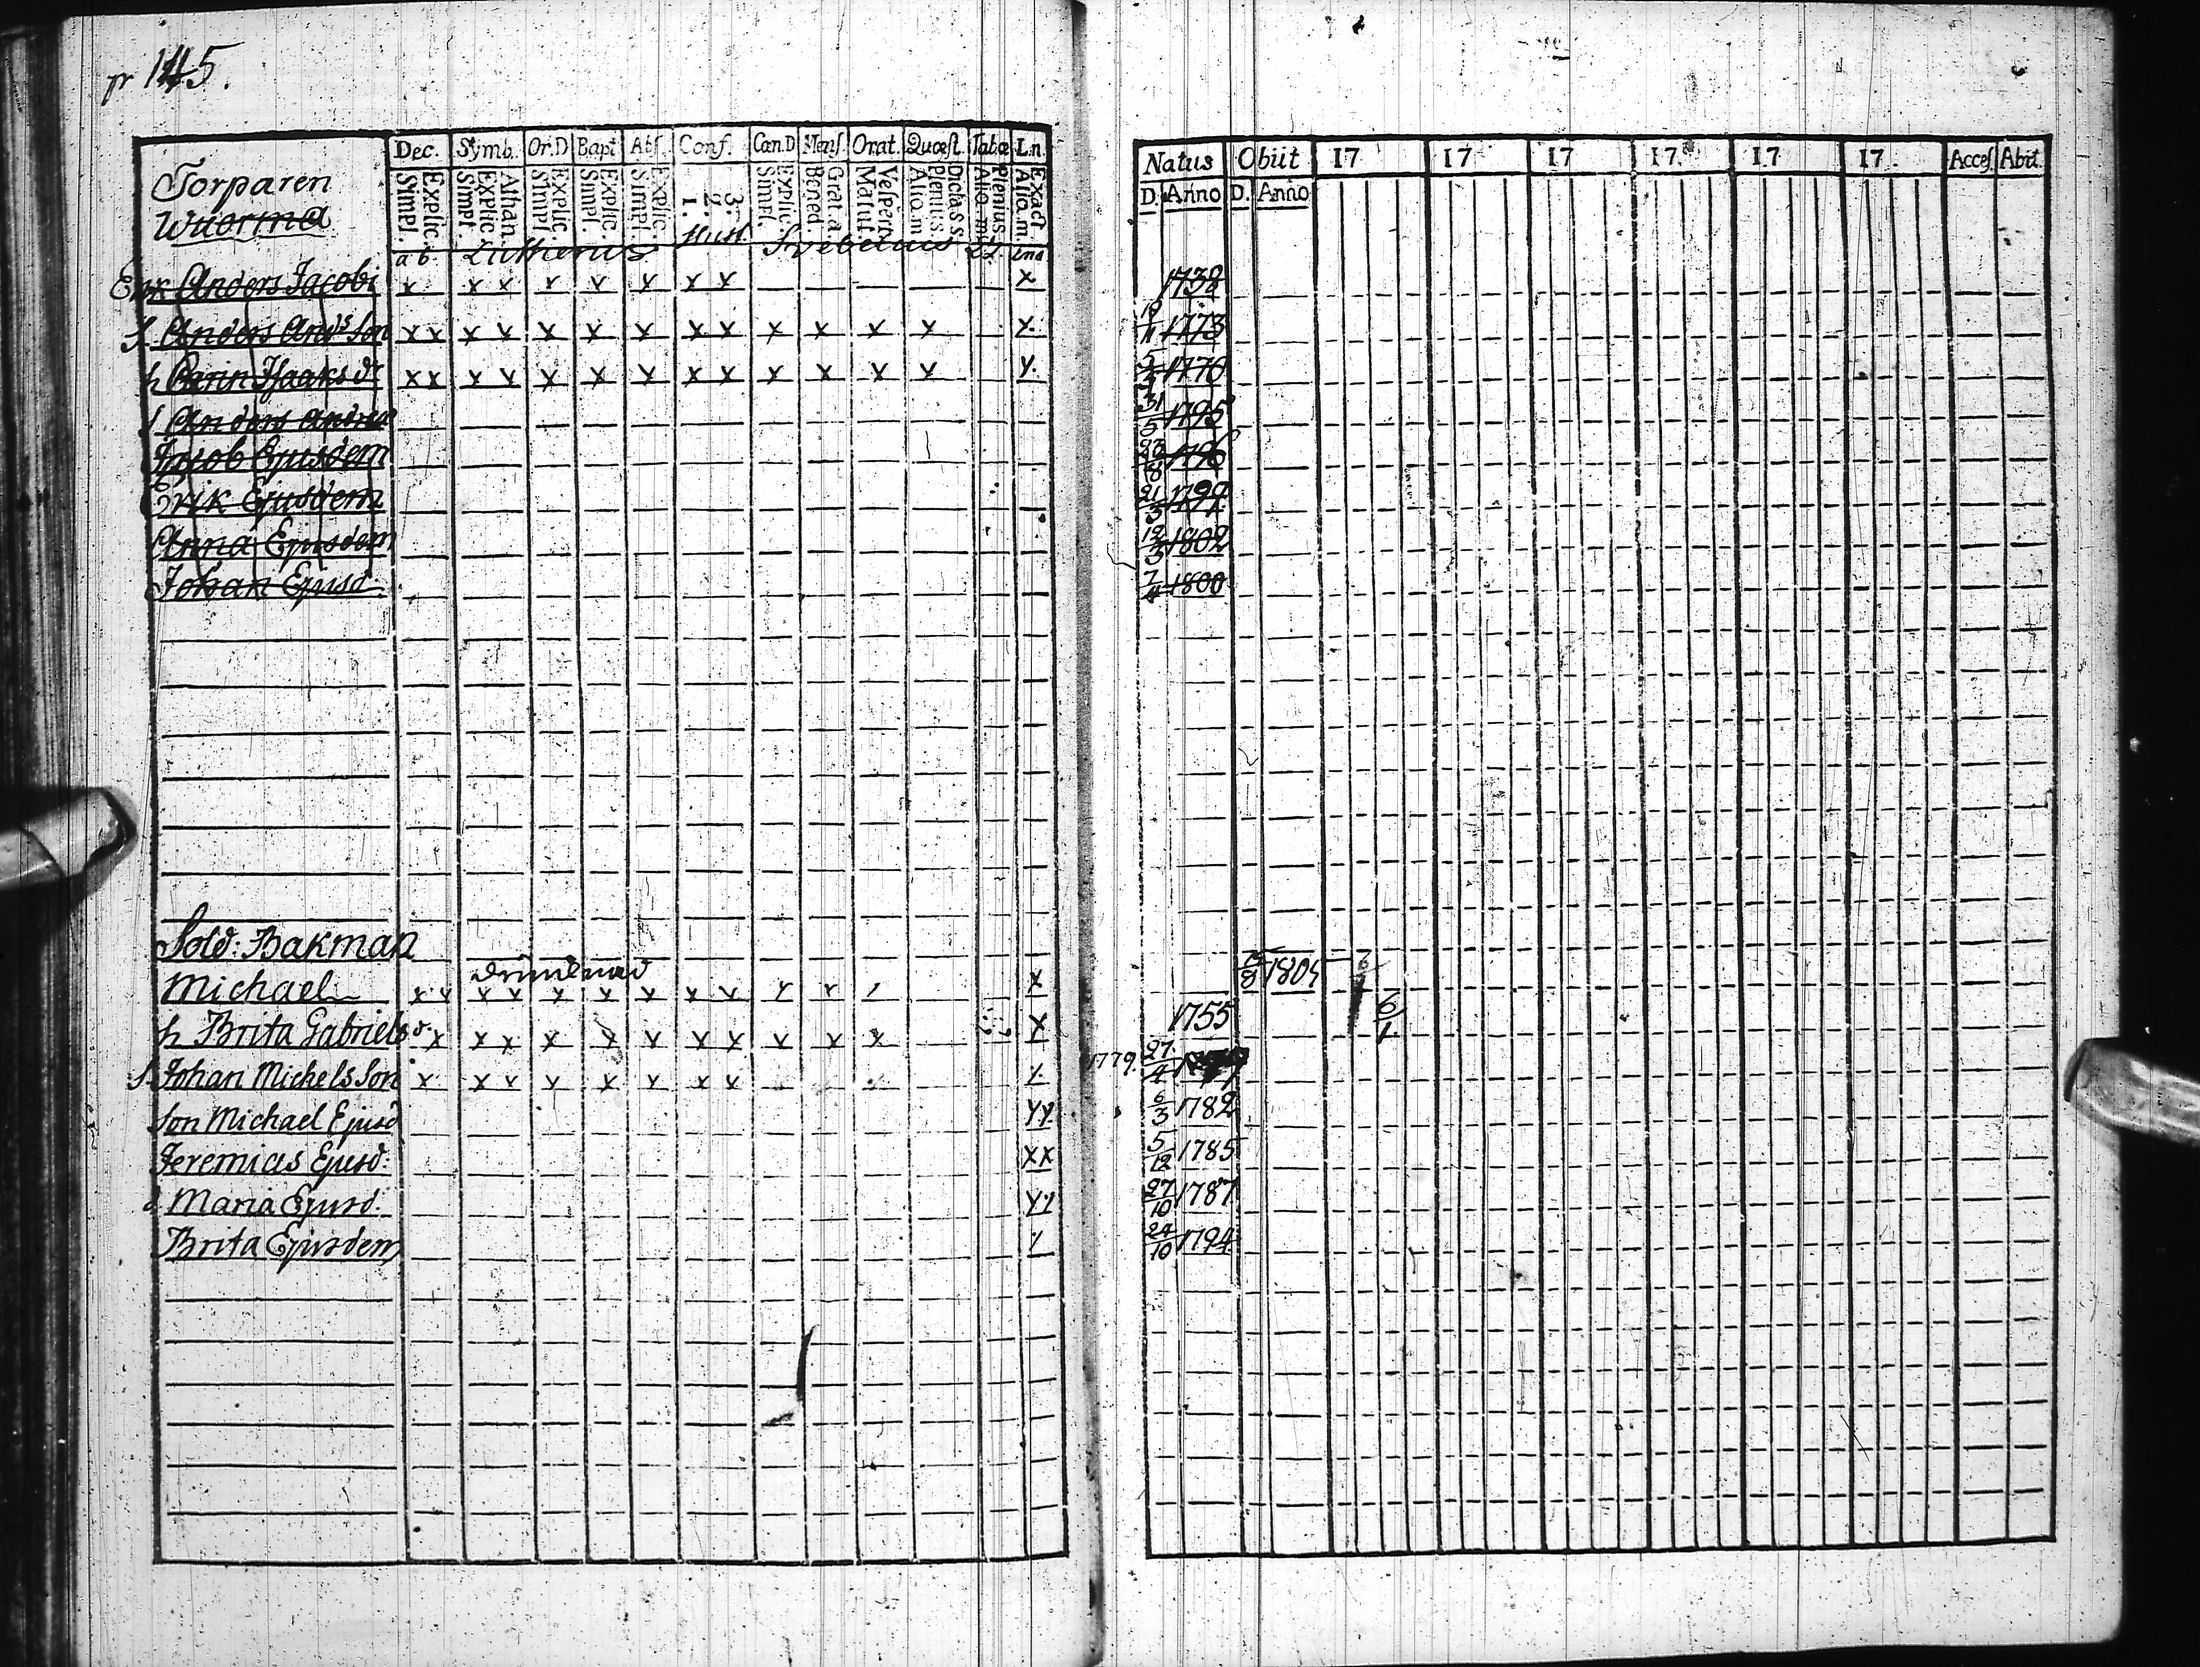 pr 145.
Dec. Symb. Or.D Bapt Abs. Conf. Cœn.D Mens. Orat. Quæst. Tabæ L.n.
Torparen
Wuorma
Simpl. Explic. Simpl. Explic. Athan. Simpl. Explic. Simpl. Explic. Simpl. Explic. 1. 2. 3. Simpl. Explic. Bened. Grat.a. Matut. Vespert. Alio.m Plenius. Dicta S s. Alio.m. Plenius. Alio.m. Exact
a b Lutherus Svebelius
Enk Anders Jacobi x x x x x x x x x
S. Anders And:s Son x x x x x x x x x x x x x x
h Carin Isaks dr x x x x x x x x x x x x x y.
s Anders Andreæ
Jacob Ejusdem
Erik Ejusdem
Anna Ejusdem
Johan Ejusd.
Sold: Bakman
drunknad
Michael x x x x x x x x x x x x
h Brita Gabriels d. x x x x x x x x x x x x
s. Johan Mickels Son x x x x x x x x x
Son Michael Ejusd yy.
Jeremias Ejusd: xx
d Maria Ejusd: yy
Brita Ejusdem
Natus Obiit 17 17 17 17 17 17 Acces. Abit.
D. Anno D. Anno
1738
1773
5 1770
31/5 1795
1796
21/3 1799
12/3 1802
7 1800
1804
1755 6/1
1779. 27/4
6/3 1782
5/12 1785
27/10 1787
24/10 1794